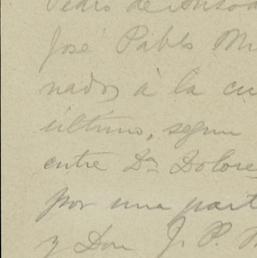 Pedro de
José Pablo
nados à la
último, segun
entre Da Dolore
por una part
y Don J. P.